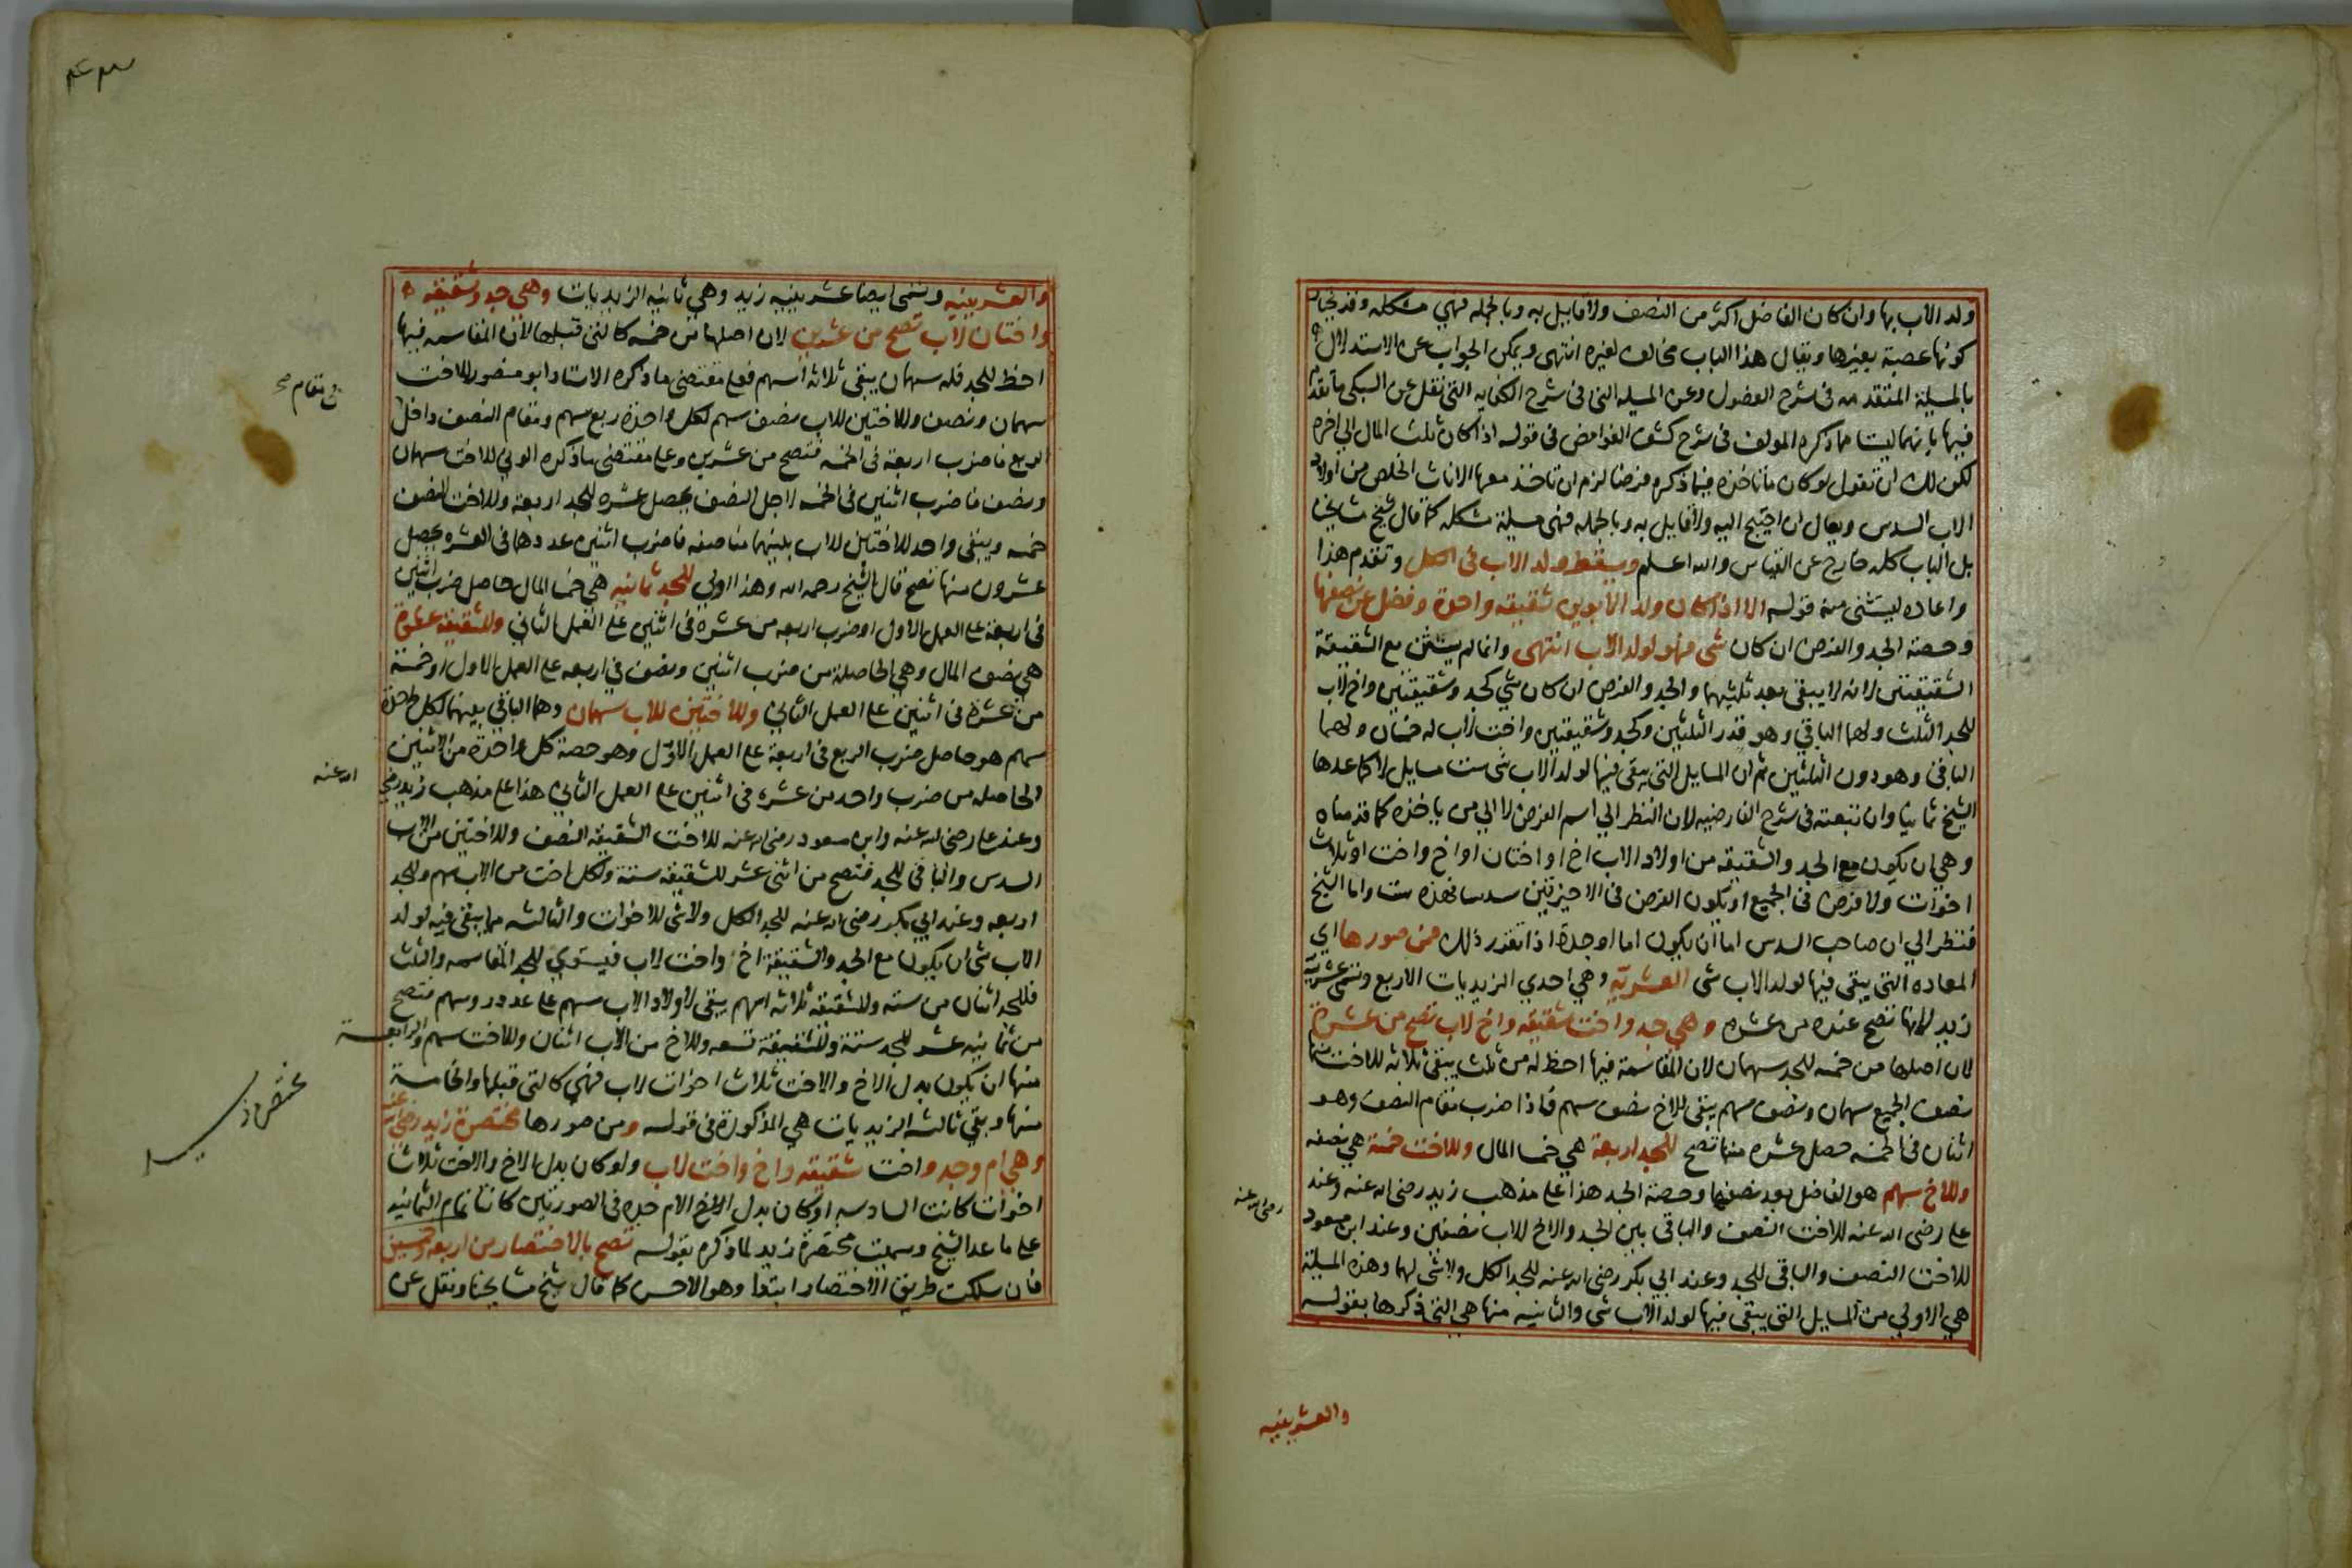 ولد الاب بها وان كان الفاضل اكثر من النصف ولا قايل به وبالجمله فهي مشكله وقد يختار
كونها عصبة بغيرها ويقال هذا الباب مخالف لغيره انتهى ويمكن الجواب عن الاستدلال
بالمسيلة المتقدمه فى شرح الفصول وعن المسيله التى فى شرح الكفايه التى نقل عن السبكى ما تقدم
فيها بانهما ليستا مما ذكره المولف فى شرح كشف الغوامض فى قوله اذا كان ثلث المال الي اخره
لكن لك ان تقول لو كان ما تاخذه فيما ذكره فرضا لزم ان تاخذ معها الاناث الخلص من اولاد
الاب السدس ويعال ان احتيج اليه ولا قايل به وبالجمله فهى مسيلة مشكله كما قال شيخ مشايخنا
بل الباب كله خارج عن القياس والله اعلم ويسقط ولد الاب فى الكل وتقدم هذا
واعاده ليستثنى منه قوله الا اذا كان ولد الابوين شقيقه واحدة وفضل عن نصفها
وحصة الجد والفرض ان كان شى فهو لولد الاب انتهى وانما لم يستثن مع الشقيقة
الشقيقتين لانه لا يبقى بعد ثلثيهما والجد والفرض ان كان شي كجد وشقيقتين واخ لاب
للجد الثلث ولهما الباقي وهو قدر الثلثين وكجد وشقيقتين واخت لاب له خمسان ولهما
الباقى وهو دون الثلثين ثم ان المسايل التى يبقى فيها لولد الاب شى ست مسايل لا كما عدها
الشيخ ثمانيا وان تبعته فى شرح الفارضيه لان النظر الي اسم الفرض لا الي من ياخذه كما قدمناه
وهي ان يكون مع الجد والشقيقه من اولاد الاب اخ او اختان او اخ واخت او ثلاث
اخوات ولا فرض فى الجميع او يكون الفرض فى الاخيرتين سدسا فهذه ست واما الشيخ
فنظر الي ان صاحب السدس اما ان يكون اما او جدة اذا تقرر ذلك فمن صورها اي
المعاده التى يبقى فيها لولد الاب شى العشريّه وهي احدي الزيديات الاربع وتسمى عشرية
زيد لانها تصح عنده من عشره وهي جد واخت شقيقه واخ لاب تصح من عشرة
لان اصلها من خمسه للجد سهمان لان المقاسمة فيها احظ له من ثلث يبقى ثلاثه للاخت منها
نصف الجميع سهمان ونصف سهم يبقى للاخ نصف سهم فاذا ضرب مقام النصف وهو
اثنان فى الخمسه حصل عشره منها تصح للجد اربعة هي خمسا المال وللاخت خمسة هي نصفه
وللاخ سهم هو الفاضل بعد نصفها وحصة الجد هذا على مذهب زيد رضى الله عنه وعند
علي رضى الله عنه للاخت النصف والباقى بين الجد والاخ للاب نصفين وعند ابن مسعود
رضى الله عنه
للاخت النصف والباقى للجد وعند ابي بكر رضى الله عنه للجد الكل ولا شى لهما وهذه المسيلة
هي الاولي من المسايل التى يبقى فيها لولد الاب شى والثانيه منها هي التى ذكرها بقوله
والعشرينيه
والعشرينيه وتسمى ايضا عشرينيه زيد وهي ثانية الزيديات وهي جد وشقيقه
واختان لاب تصح من عشرين لان اصلها من خمسه كالتى قبلها لان المقاسمه فيها
احظ للجد فله سهمان يبقى ثلاثه اسهم فعلى مقتضى ما ذكره الاستاد ابو منصور للاخت
سهمان ونصف وللاختين للاب نصف سهم لكل واحدة ربع سهم ومقام النصف داخل
في مقام
الربع فاضرب اربعة فى الخمسه فتصح من عشرين وعلى مقتضى ما ذكره الوني للاخت سهمان
ونصف فاضرب اثنين فى الخمسه لاجل النصف يحصل عشره للجد اربعة وللاخت النصف
خمسه ويبقى واحد للاختين للاب بينهما مناصفه فاضرب اثنين عددهما فى العشره يحصل
عشرون منها تصح قال الشيخ رحمه الله وهذا اولي للجد ثمانيه هي خمسا المال حاصل ضرب اثنين
فى اربعة على العمل الاول او ضرب اربعه من عشرة فى اثنين على العمل الثاني وللشقيقة عشرة
هي نصف المال وهي الحاصلة من ضرب اثنين ونصف في اربعه على العمل الاول او خمسة
من عشرة فى اثنين على العمل الثاني وللاختين للاب سهمان وهما الباقي بينهما لكل واحدة
سهم هو حاصل ضرب الربع فى اربعة على العمل الاول وهو حصة كل واحدة من الاثنين
الحاصله من ضرب واحد من عشره فى اثنين على العمل الثاني هذا على مذهب زيد رضي
الله عنه
وعند علي رضى الله عنه وابن مسعود رضى الله عنه للاخت الشقيقه النصف وللاختين من الاب
السدس والباقى للجد فتصح من اثنى عشر للشقيقه ستة ولكل اخت من الاب سهم وللجد
اربعه وعند ابي بكر رضى الله عنه للجد الكل ولا شى للاخوات والثالثه مما يبقى فيه لولد
الاب شى ان يكون مع الجد والشقيقة اخ واخت لاب فيستوي للجد المقاسمه والثلث
فللجد اثنان من سته وللشقيقه ثلاثه اسهم يبقى لاولاد الاب سهم على عدد روسهم فتصح
من ثمانيه عشر للجد ستة وللشقيقة تسعه وللاخ من الاب اثنان وللاخت سهم والرابعة
منها ان يكون بدل الاخ والاخت ثلاث اخوات لاب فهي كالتى قبلها والخامسة
منها وبقي ثالثه الزيديات هي المذكورة فى قوله ومن صورها مختصرة زيد رضى الله عنه
وهي ام وجد واخت شقيقه واخ واخت لاب ولو كان بدل الاخ والاخت ثلاث
اخوات كانت السادسه او كان بدل الام جده فى الصورتين كانتا تمام الثمانيه
على ما عد الشيخ وسميت مختصرة زيد لما ذكره بقوله تصح بالاختصار من اربعه وخمسين
فان سلكت طريق الاختصار ابتداء وهو الاحسن كما قال شيخ مشايخنا ونقل عن